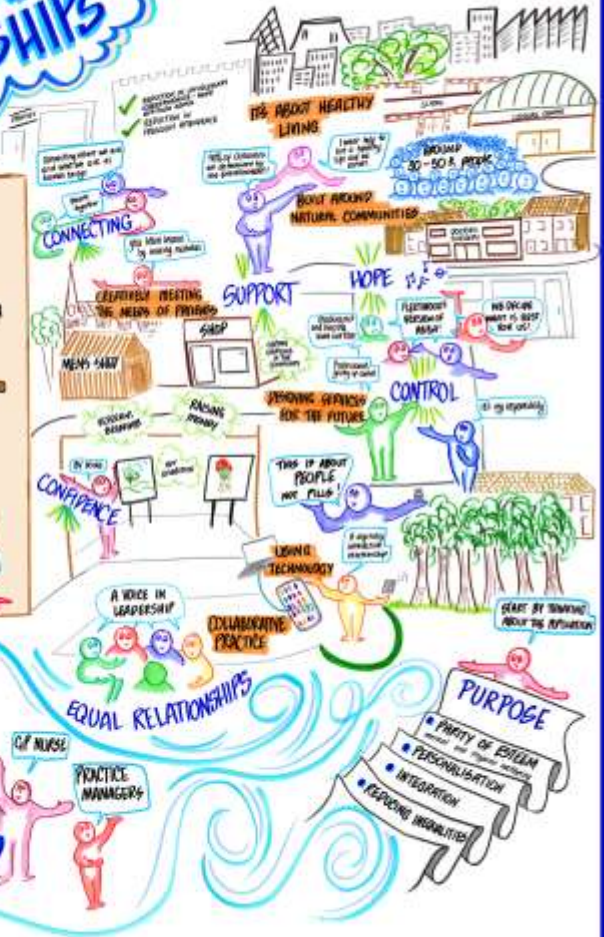 SHIPS
IT'S ABOUT HEALTHY
LIVING
SCHOOL
LEISURE CENTRE
REDUCTION IN
AROUND
30-50 K PEOPLE
BUILT AROUND
NATURAL COMMUNITIES
DOCTORS
SURGERY
CONNECTING
CREATIVELY MEETING
THE NEEDS OF PATIENTS
SUPPORT
HOPE
MENS SHED
SHOP
WE DECIDE
WHAT IS BEST
FOR US!
DESIGNING SERVICES
FOR THE FUTURE
CONTROL
It's my responsibility
RAISING
MONEY
BY DOING
ART
EXHIBITION
CONFIDENCE
THIS IS ABOUT
PEOPLE
NOT PILLS!
USING
TECHNOLOGY
A VOICE IN
LEADERSHIP
COLLABORATIVE
PRACTICE
EQUAL RELATIONSHIPS
START BY THINKING
ABOUT THE POPULATION
PURPOSE
• PARITY OF ESTEEM
• PERSONALISATION
• INTEGRATION
• REDUCING INEQUALITIES
G.P NURSE
PRACTICE
MANAGERS